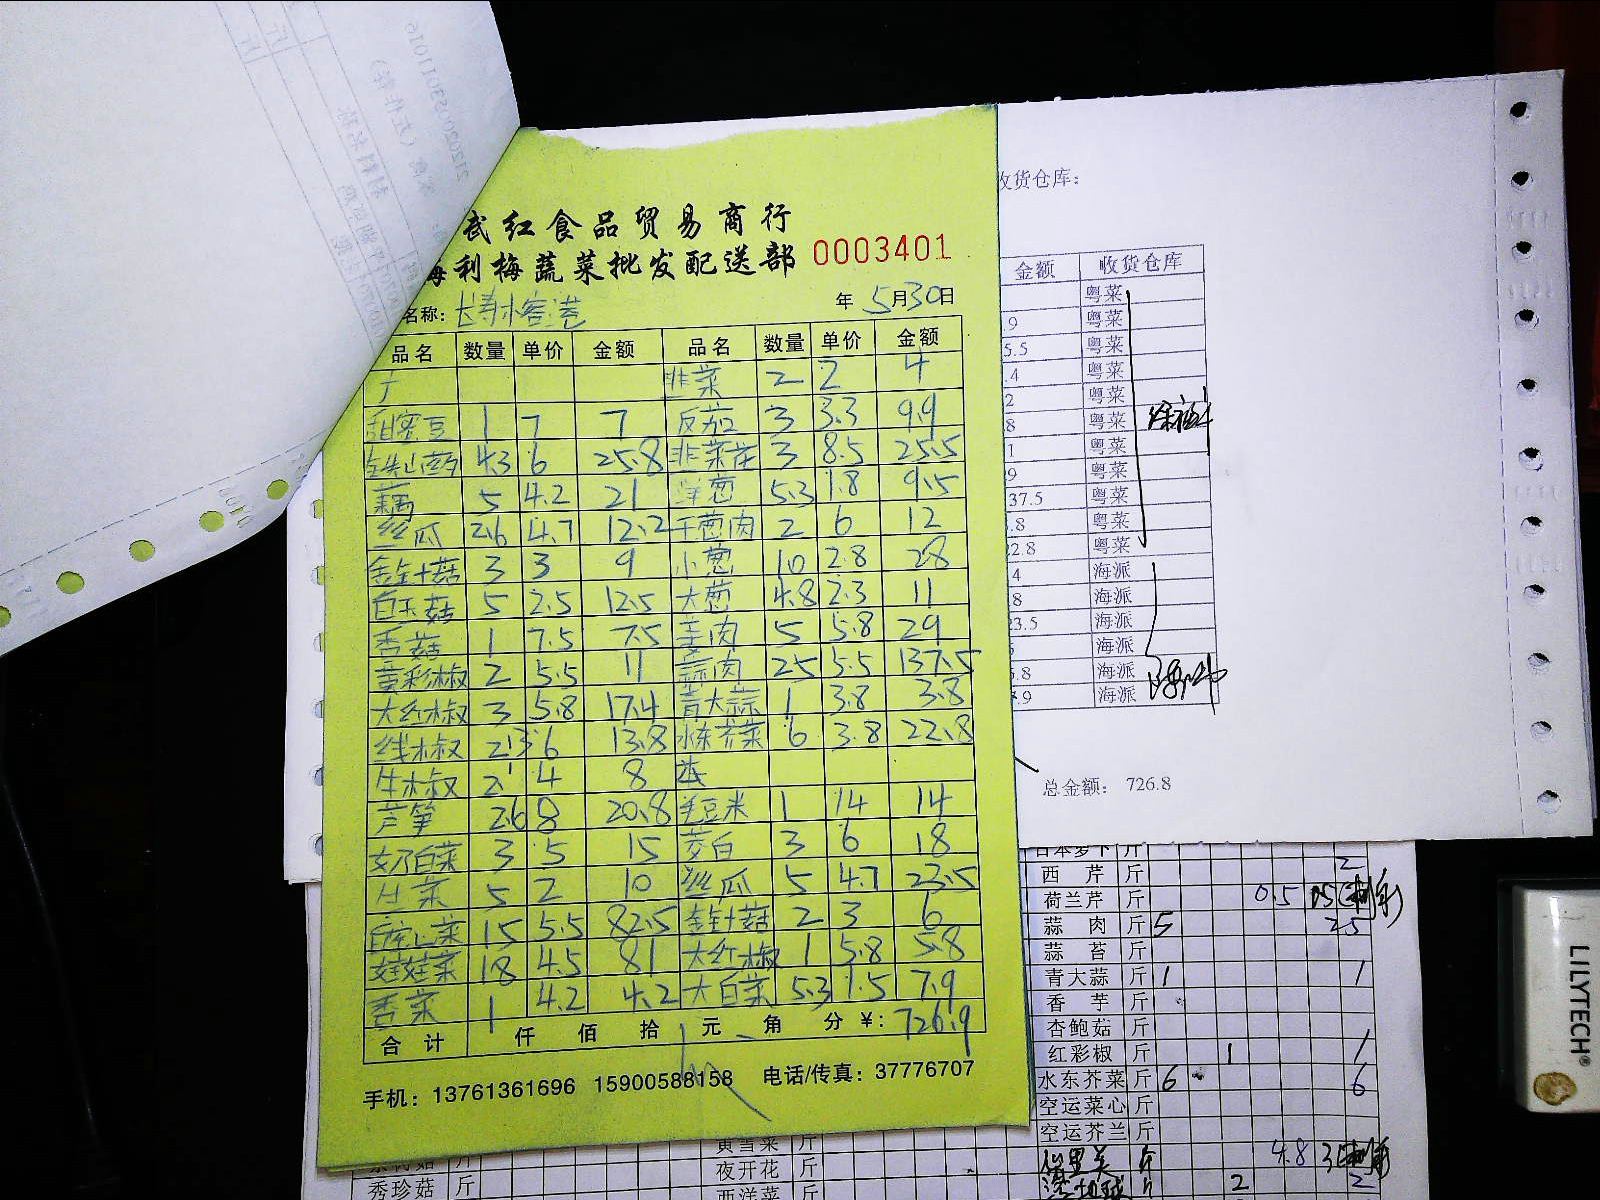 武红食品贸易商行
海利梅蔬菜批发配送部 0003401
名称： 年 5月30日
品名 数量 单价 金额 品名 数量 单价 金额
韭菜 2 2 4
甜蜜豆 1 7 7 反茄 3 3.3 9.9
铁山药 4.3 6 25.8 韭菜花 3 8.5 25.5
藕 5 4.2 21 洋葱 5.3 1.8 9.5
丝瓜 2.6 4.7 12.2 干葱肉 2 6 12
金针菇 3 3 9 小葱 10 2.8 28
白玉菇 5 2.5 12.5 大葱 4.8 2.3 11
香菇 1 7.5 7.5 姜肉 5 5.8 29
黄彩椒 2 5.5 11 蒜肉 25 5.5 137.5
大红椒 3 5.8 17.4 青大蒜 1 3.8 3.8
线椒 2.3 6 13.8 水东芥菜 6 3.8 22.8
牛椒 2 4 8
芦笋 2.6 8 20.8 毛豆米 1 14 14
奶白菜 3 5 15 茭白 3 6 18
生菜 5 2 10 丝瓜 5 4.7 23.5
15 5.5 82.5 金针菇 2 3 6
娃娃菜 18 4.5 81 大红椒 1 5.8 5.8
香菜 1 4.2 4.2 大白菜 5.3 1.5 7.9
合计 仟 佰 拾 元 角 分 ¥: 726.9
手机：13761361696 15900588158 电话/传真：37776707
收货仓库：
金额 收货仓库
粤菜
.9 粤菜
5.5 粤菜
.4 粤菜
2 粤菜
8 粤菜
1 粤菜
9 粤菜
37.5 粤菜
.8 粤菜
22.8 粤菜
4 海派
.8 海派
23.5 海派
海派
5.8 海派
7.9 海派
总金额： 726.8
日本萝卜 斤
西芹 斤 2
荷兰芹 斤 0.5
蒜肉 斤 5 25
蒜苔 斤
青大蒜 斤 1 1
香芋 斤
杏鲍菇 斤
红彩椒 斤 1 1
水东芥菜 斤 6 6
空运菜心 斤
空运芥兰 斤
斤 4.8
2 2
黄雪菜 斤
夜开花 斤
西洋菜 斤
秀珍菇 斤
LILYTECH®